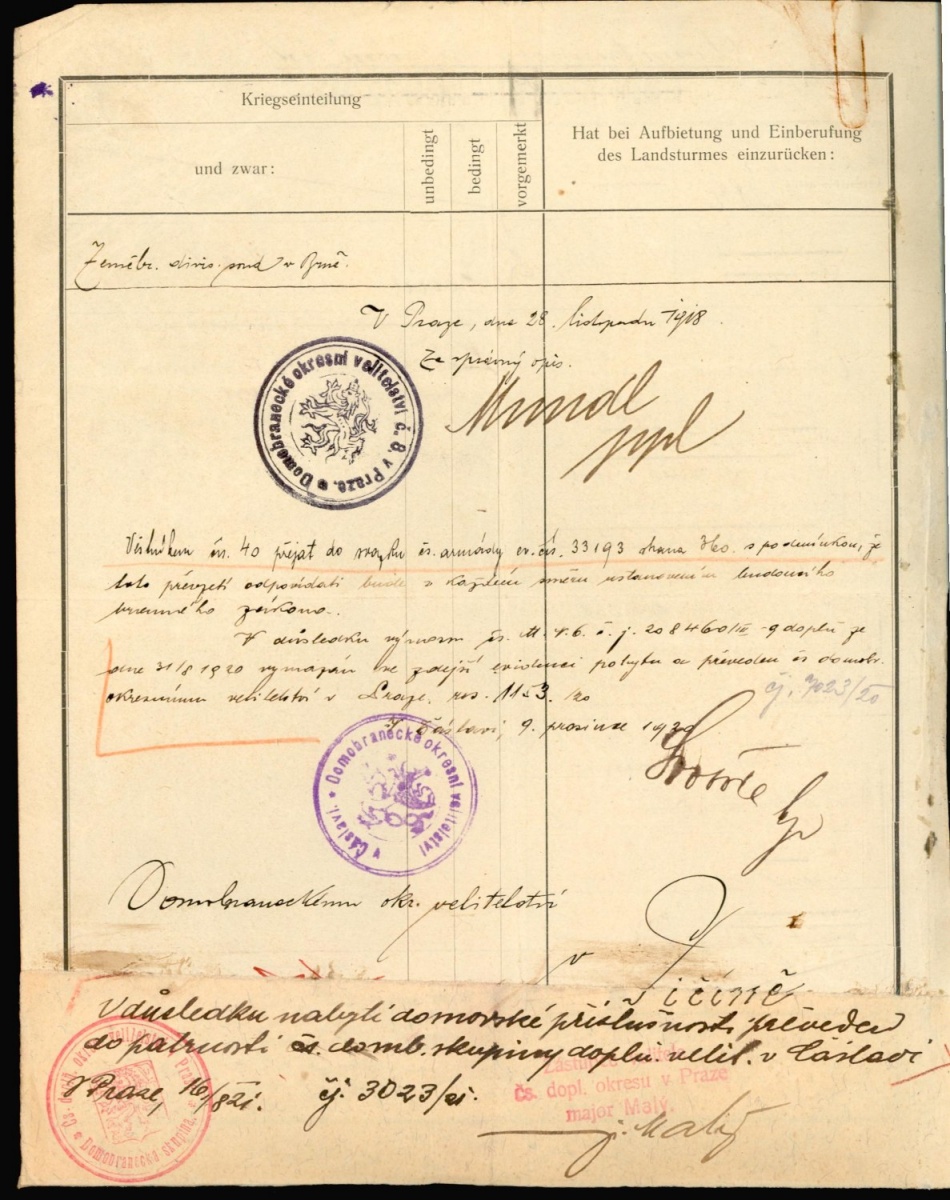 Kriegseinteilung
und zwar:
unbedingt
bedingt
vorgemerkt
Hat bei Aufbietung und Einberufung
des Landsturmes einzurücken:
Zeměbr. divis. soud v Brně.
V Praze, dne 28. listopadu 1918.
Za správný opis.
Domobranecké okresní velitelství č. 8. v Praze.
Věstníkem čs. 40 přejat do svazku čs. armády ev. čís. 33193 strana s podmínkou, že
toto převzetí odpovídati bude v každém směru ustanovením budoucího
branného zákona.
V důsledku výnosu čj. 208460/III-9 doplň ze
dne 31/8 1920 vymazán ze zdejší evidence pohybu a převeden čs domobr.
okresnímu velitelství v Praze, res. 1153/20
čj. 3023/20
V Čáslavi, 9. prosince 1920
Domobranecké okresní velitelství v Čáslavi.
Domobraneckému okr. velitelství
v Jičíně
V důsledku nabytí domovské příslušnosti převeden
do patrnosti čs. domb. skupiny doplň. velit. v Čáslavi
V Praze, 16/821. čj. 3023/21.
čs. dopl. okresu v Praze
major Malý.
Domobranecká skupina.
j. Malý